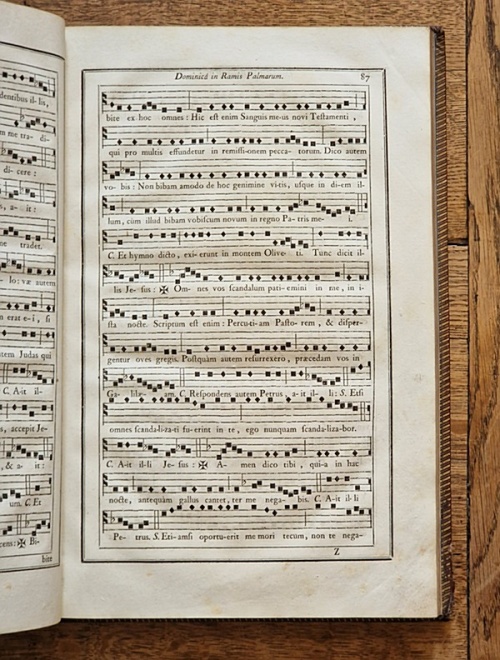 dentibus il- lis,
m me tra- di-
di- cere :
a- it :
ne tradet.
lo: væ autem
n erat e-i, si
tem Judas qui
C. A-it il-
s, accepit Je-
, & a- it :
um. C. Et
cens: ✠ Bi-
bite
Dominicâ in Ramis Palmarum. 87
bite ex hoc omnes : Hic est enim Sanguis me-us novi Testamenti ,
qui pro multis effundetur in remissi-onem pecca- torum. Dico autem
vo- bis : Non bibam amodo de hoc genimine vi-tis, usque in di-em il-
lum, cùm illud bibam vobiscum novum in regno Pa- tris me- i.
C. Et hymno dicto, exi- erunt in montem Olive- ti. Tunc dicit il-
lis Je- sus : ✠ Om- nes vos scandalum pati-emini in me , in i-
sta nocte. Scriptum est enim : Percu-ti-am Pasto- rem , & disper-
gentur oves gregis. Postquàm autem resurrexero, præcedam vos in
Ga- lilæ- am. C. Respondens autem Petrus , a- it il- li : S. Etsi
omnes scanda-li-za-ti fu-erint in te , ego nunquam scanda-liza-bor.
C. A-it il-li Je- sus : ✠ A- men dico tibi , qui-a in hac
nocte, antequàm gallus cantet, ter me nega- bis. C. A-it il-li
Pe- trus. S. Eti-amsi oportu-erit me mori tecum, non te nega-
Z